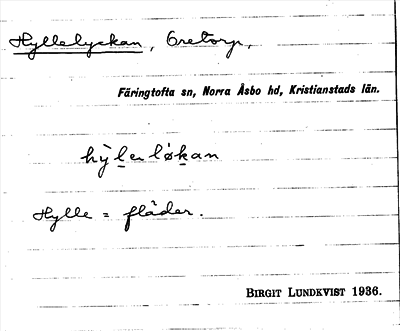 Hyllelyckan, Gretorp,
Färingtofta sn, Norra Åsbo hd, Kristianstads län.
hỳlerlø̀kan
Hylle = fläder.
BIRGIT LUNDKVIST 1936.